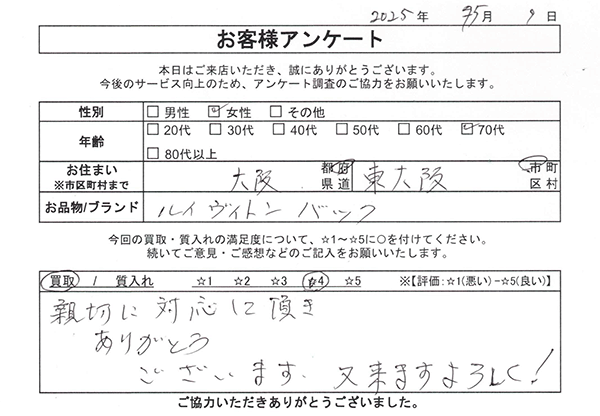 2025年 5月 9日
お客様アンケート
本日はご来店いただき、誠にありがとうございます。
今後のサービス向上のため、アンケート調査のご協力をお願いいたします。
性別 □ 男性 ☑ 女性 □ その他
年齢 □ 20代 □ 30代 □ 40代 □ 50代 □ 60代 ☑ 70代
□ 80代以上
お住まい ※市区町村まで 大阪 都府県道 東大阪 市町区村
お品物/ブランド ルイヴィトン バック
今回の買取・質入れの満足度について、☆1～☆5に○を付けてください。
続いてご意見・ご感想などのご記入をお願いいたします。
買取 / 質入れ ☆1 ☆2 ☆3 ☆4 ☆5 ※【評価:☆1(悪い)−☆5(良い)】
親切に対応して頂き
ありがとう
ございます. 又来ますよろしく!
ご協力いただきありがとうございました。